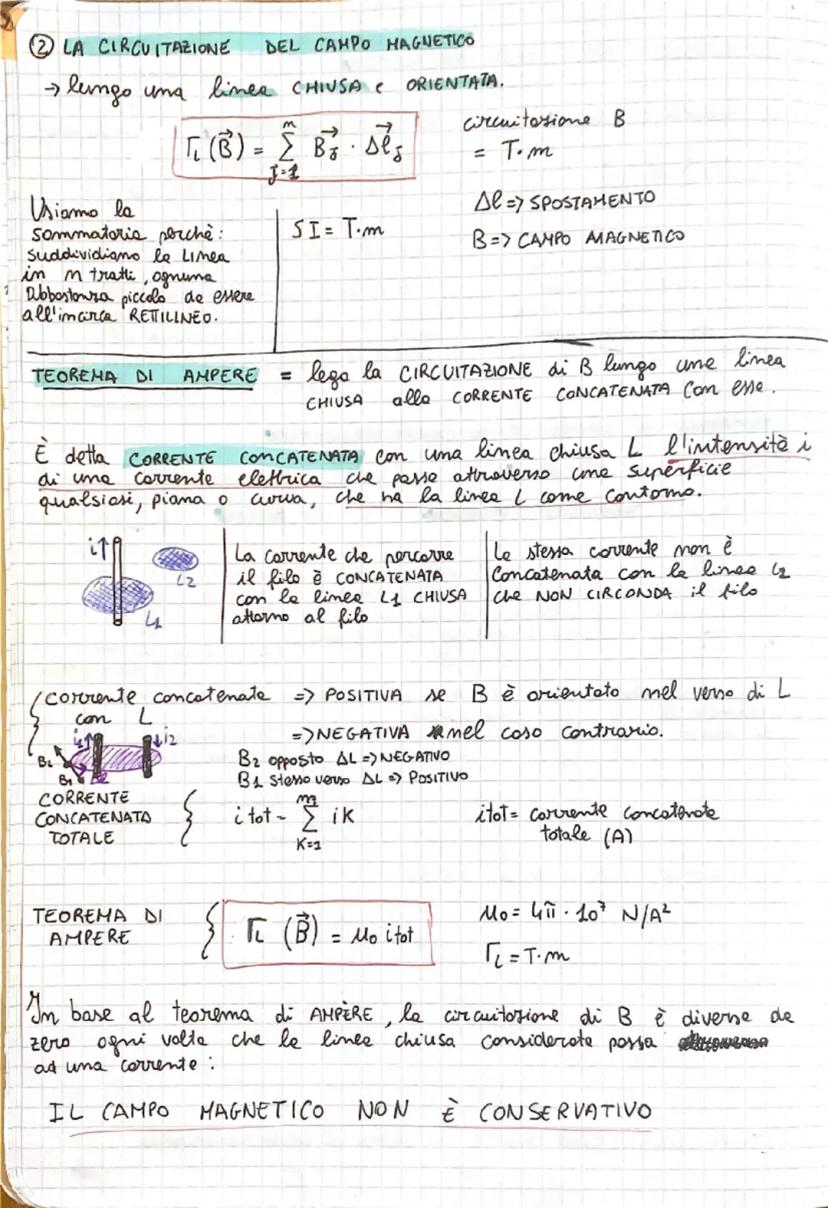 ② LA CIRCUITAZIONE DEL CAMPO MAGNETICO
→ lungo una linea CHIUSA e ORIENTATA.
Γ_L (B⃗) = Σ_{J=1}^{n} B⃗_J · Δl⃗_J
circuitazione B
= T·m
Δl => SPOSTAMENTO
B => CAMPO MAGNETICO
Usiamo la
sommatoria perchè:
suddividiamo la LINEA
in n tratti, ognuno
abbastanza piccolo da essere
all'incirca RETTILINEO.
SI = T·m
TEOREMA DI AMPERE = lega la CIRCUITAZIONE di B lungo una linea
CHIUSA alla CORRENTE CONCATENATA con essa.
È detta CORRENTE CONCATENATA con una linea chiusa L l'intensità i
di una corrente elettrica che passa attraverso una superficie
qualsiasi, piana o curva, che ha la linea L come contorno.
i↑
L2
L1
La corrente che percorre
il filo è CONCATENATA
con la linea L1 CHIUSA
attorno al filo
La stessa corrente non è
concatenata con la linea L2
che NON CIRCONDA il filo
corrente concatenata => POSITIVA se B è orientato nel verso di L
con L
=> NEGATIVA nel caso contrario.
i1↑ ↓i2
B2
B1
B2 opposto ΔL => NEGATIVO
B1 stesso verso ΔL => POSITIVO
CORRENTE
CONCATENATA
TOTALE
i tot = Σ_{K=1}^{m} iK
itot = corrente concatenata
totale (A)
TEOREMA DI
AMPERE
Γ_L (B⃗) = μ0 itot
μ0 = 4π · 10⁷ N/A²
Γ_L = T·m
In base al teorema di AMPÈRE, la circuitazione di B è diversa da
zero ogni volta che la linea chiusa considerata possa
ad una corrente:
IL CAMPO MAGNETICO NON È CONSERVATIVO